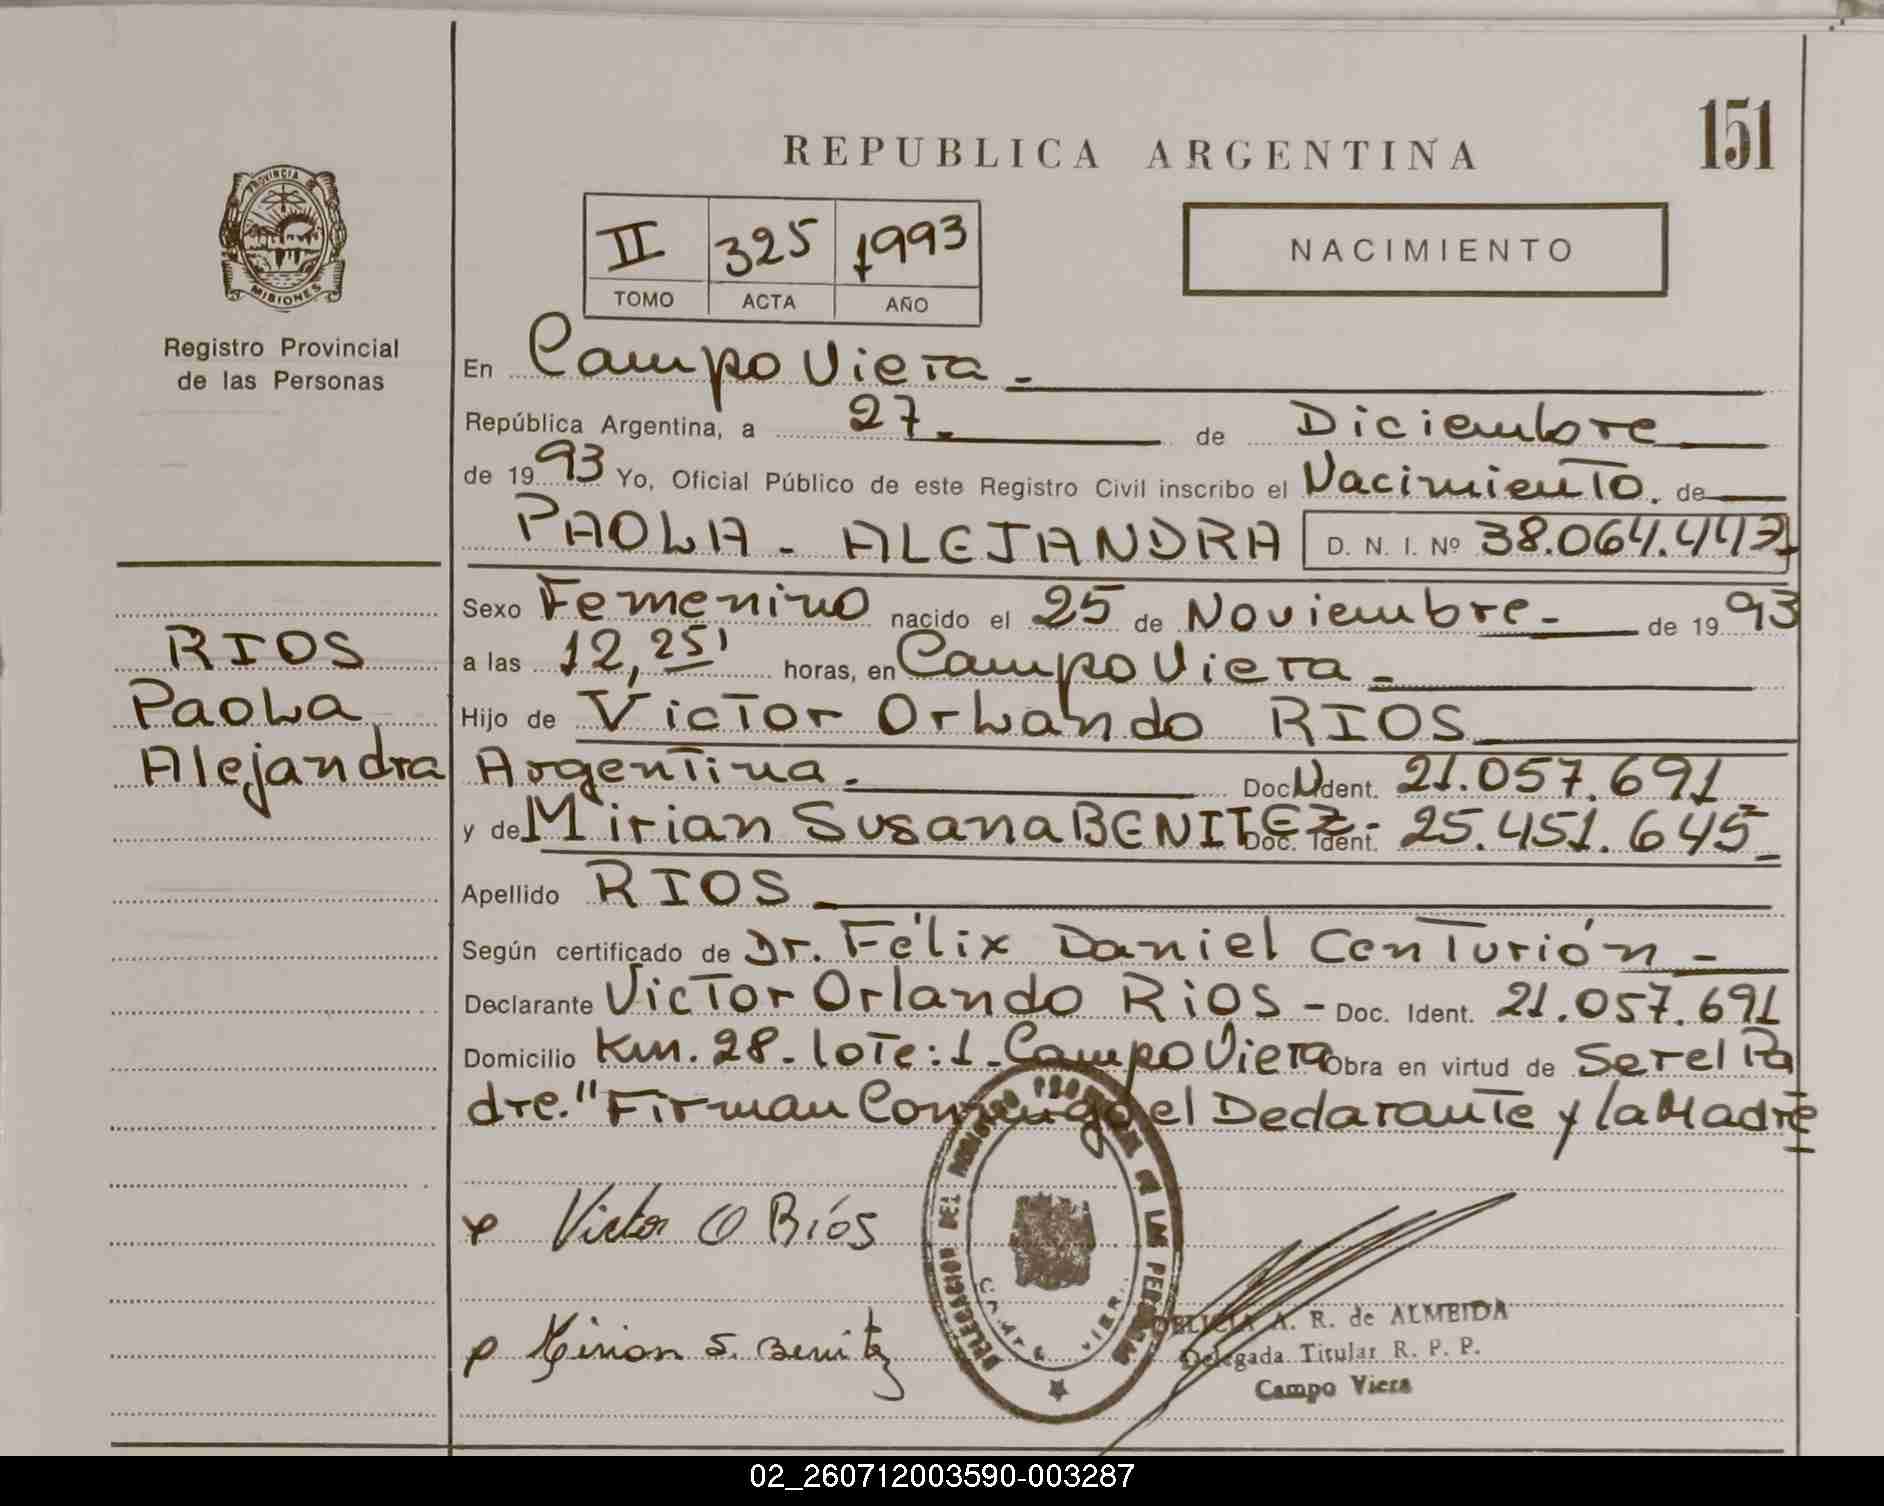 151
REPUBLICA ARGENTINA
PROVINCIA DE
MISIONES
Registro Provincial
de las Personas
II 325 1993
TOMO ACTA AÑO
NACIMIENTO
En Campo Viera -
República Argentina, a 27. de Diciembre
de 1993 Yo, Oficial Público de este Registro Civil inscribo el Nacimiento. de
PAOLA - ALEJANDRA D. N. I. Nº 38.064.443
Sexo Femenino nacido el 25 de Noviembre - de 1993
RIOS
Paola
Alejandra
a las 12,25' horas, en Campo Viera -
Hijo de Victor Orlando RIOS
Argentina. Doc. Ident. 21.057.691
y de Mirian Susana BENITEZ - Doc. Ident. 25.451.645
Apellido RIOS
Según certificado de Dr. Félix Daniel Centurión -
Declarante Victor Orlando RiOS - Doc. Ident. 21.057.691
Domicilio Km. 28 - lote: 1 - Campo Viera Obra en virtud de Ser el Pa
dre. " Firman Conmigo el Declarante y la Madre
Victor O Ríos
Mirian S. Benitez
DELEGACION DEL REGISTRO PROVINCIAL DE LAS PERSONAS
CAMPO VIERA
A. R. de ALMEIDA
Delegada Titular R. P. P.
Campo Viera
02_260712003590-003287